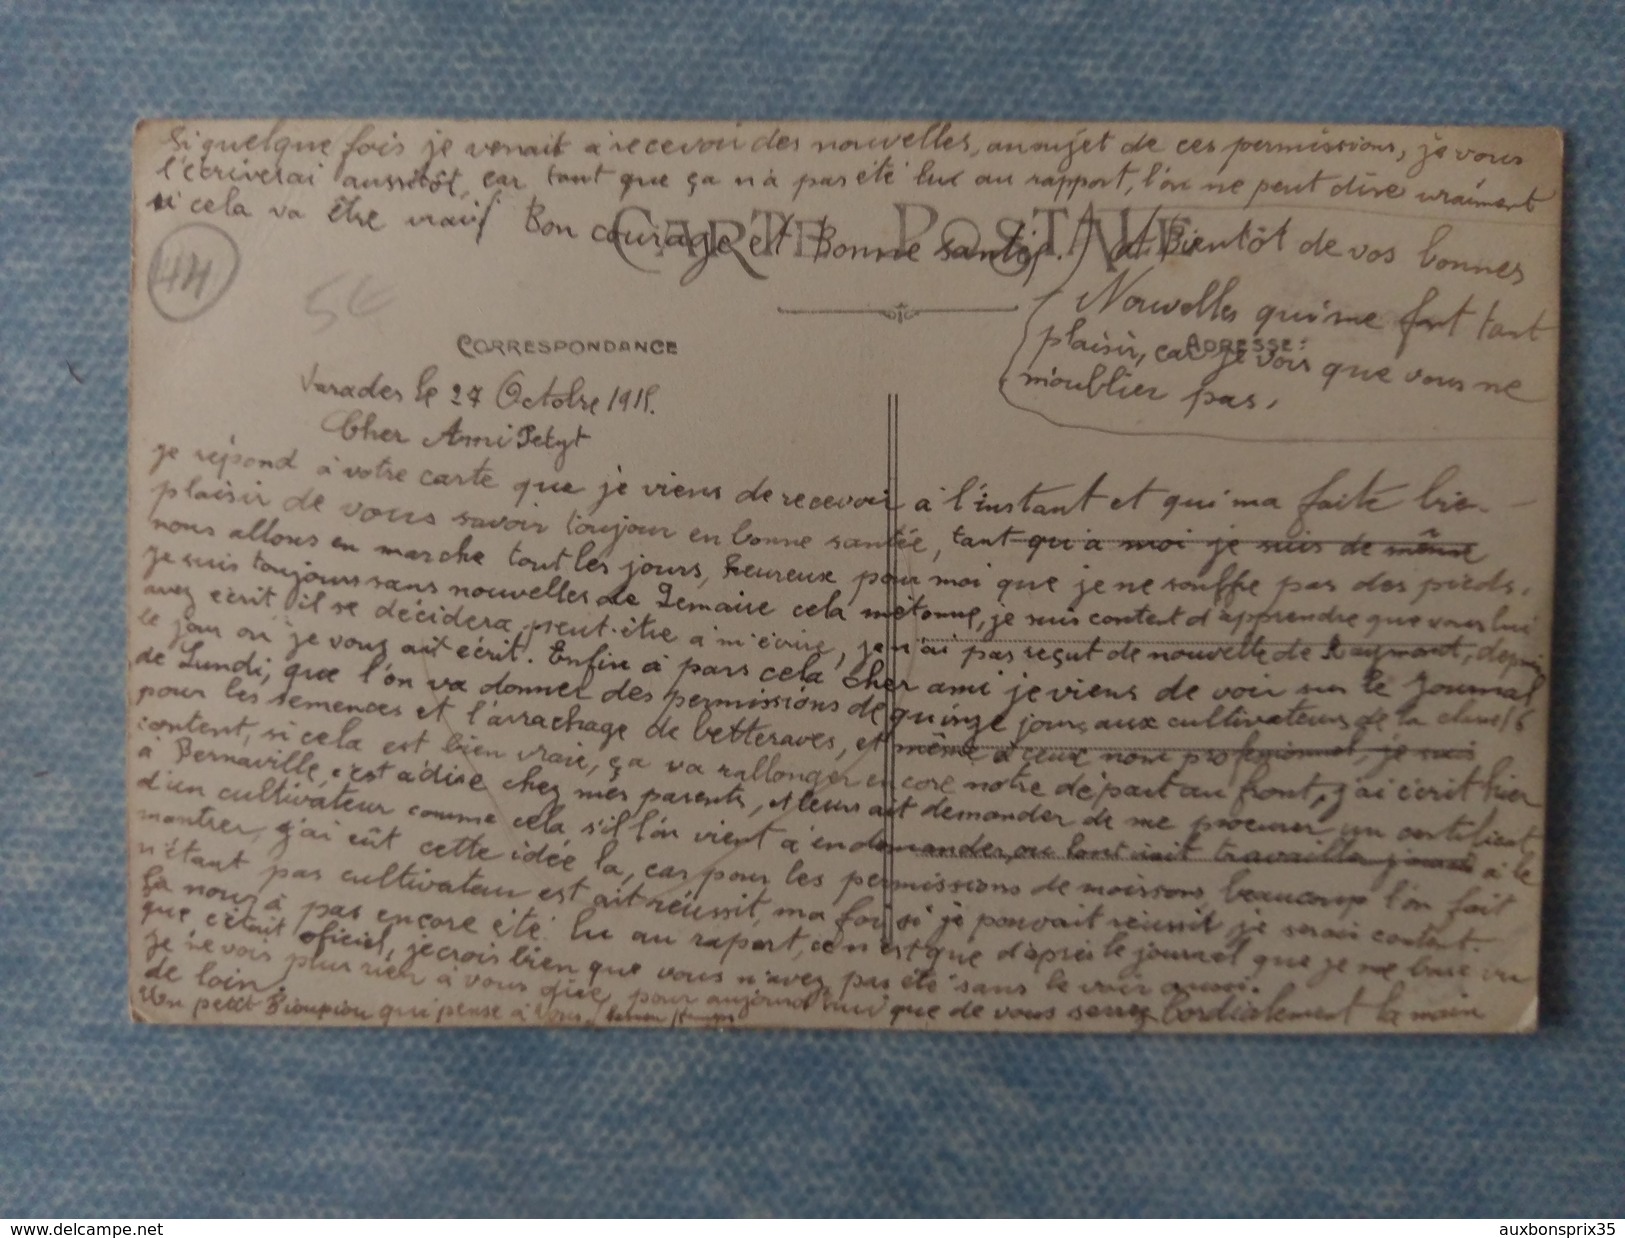 Si quelque fois je venait a recevoir des nouvelles, au sujet de ces permissions, je vous
l'écriverai aussitôt, car tant que ça n'a pas été lut au rapport, l'on ne peut dire vraiment
si cela va être vraif Bon courage et Bonne santé. a Bientôt de vos bonnes
Nouvelles qui me font tant
plaisir, car je vois que vous ne
m'oublier pas.
CARTE POSTALE
44
CORRESPONDANCE
ADRESSE:
Varades le 27 Octobre 1915.
Cher Ami Petyt
je répond à votre carte que je viens de recevoir à l'instant et qui ma faite bien
plaisir de vous savoir toujour en bonne santée, tant qu'a moi je suis de même
nous allons en marche tout les jours, heureux pour moi que je ne souffre pas des pieds.
je suis toujours sans nouvelles de Lemaire cela m'étonne, je suis content d'apprendre que vous lui
avez écrit il se décidera peut-être a m'écrire, je n'ai pas reçut de nouvelle de Raymont, depuis
le jour où je vous ait écrit. Enfin à pars cela cher ami je viens de voir sur le Journal
de Lundi, que l'on va donner des permissions de quinze jours aux cultivateurs de la classe 16
pour les semences et l'arrachage de betteraves, et même a ceux non professionnel, je suis
content, si cela est bien vraie, ça va rallonger encore notre départ au front, j'ai écrit hier
à Bernaville, c'est à dire chez mes parents, et leurs ait demander de me procurer un certificat
d'un cultivateur comme cela s'il l'on vient à en demander, ou l'ont ait travailler j'aurai à le
montrer, j'ai eût cette idée la, car pour les permissions de moissons, beaucoup l'on fait
n'étant pas cultivateur est ait réussit, ma foi si je pouvait réussit je serai content.
Ça nous à pas encore été lu au raport, ce n'est que d'après le journal que je me base vu
que c'était oficiel, je crois bien que vous n'avez pas été sans le voir aussi.
je ne vois plus rien à vous dire, pour aujourd'hui que de vous serrez Cordialement la main
de loin.
Un petit Pioupiou qui pense à vous
www.delcampe.net
auxbonsprix35